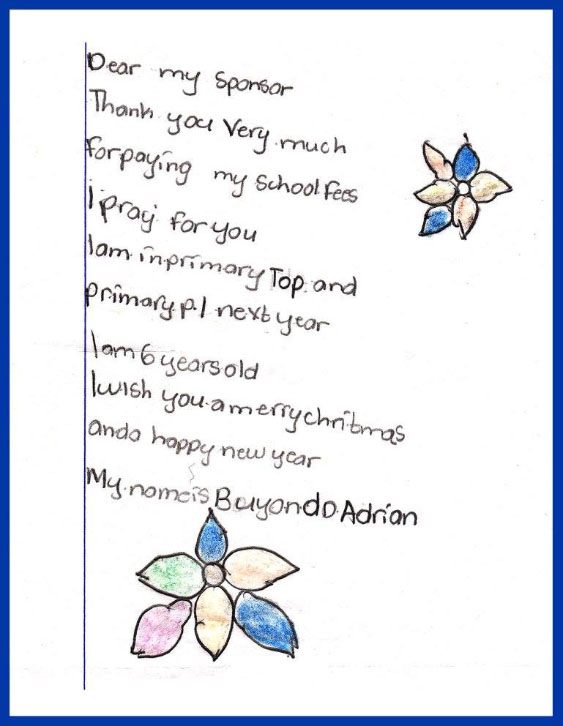 Dear my sponsor
Thank you Very much
forpaying my school fees
I pray for you
Iam inprimary Top and
primary p.1 next year
Iam 6 years old
Iwish you a merrychritmas
anda happy new year
My nameis Buyondo Adrian